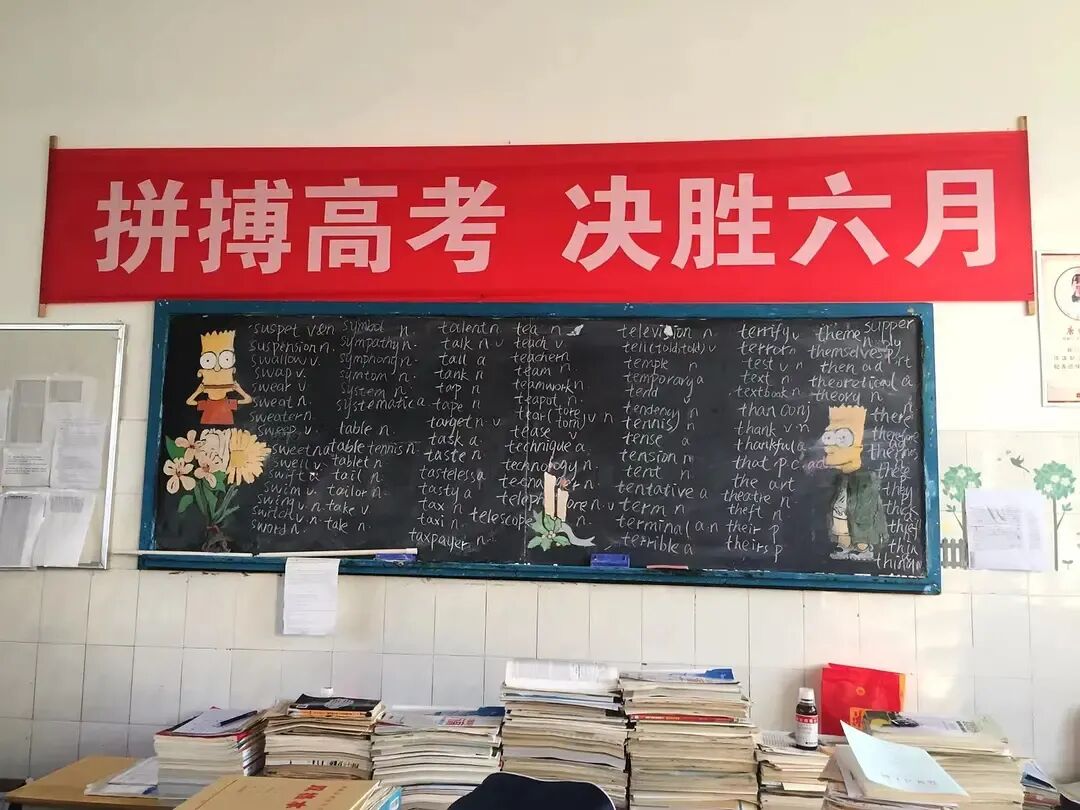 拼搏高考 决胜六月
suspet v.en
suspension n.
swallow v.
swap v.
swear v.
sweat n.
sweater n.
sweep v.
sweet na
swell v.
swift a
swim v.
swim v.n.
switch v.
sword n.
symbol n.
sympathy n.
symphony n.
symtom n.
system n.
systematic a
table n.
table tennis n.
tablet n
tail n
tailor n.
take v
take n.
talent n.
talk n.v
tall a
tank n
tap n
tape n
target n.v
task a
taste n
tasteless a
tasty a
tax n
taxi n.
taxpayer n.
tea n
teach v.
teacher n
team n
teamwork n
teapot n.
tear (tore torn) v n
tease v
technique a
technology n.
telescope n.
television n
tell (told,told) v
temple n
temporary a
tend
tendency n
tennis) n
tense a
tension n
tent n
tentative a
term n
terminal a.n
terrible a
terrify v
terror n
test v n
text n
textbook n
than conj
thank v.n
thankful a
that p.c. ad
the art
theatre n.
theft n
their p
theirs p
theme n
themselves p
then ad
theoretical a
theory n
there